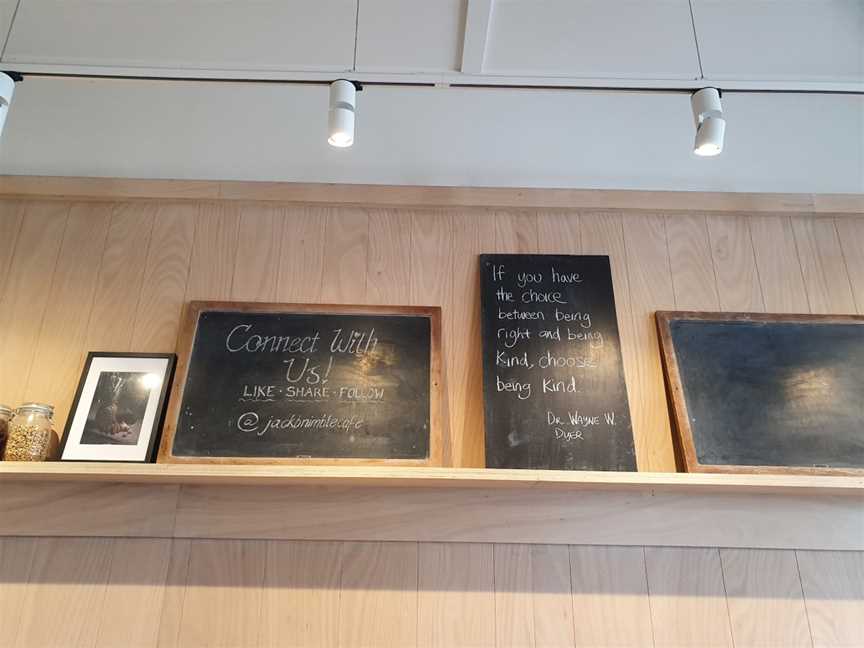 Connect With
Us!
LIKE · SHARE · FOLLOW
@jackbnimblecafe
If you have
the choice
between being
right and being
Kind, choose
being Kind.
DR WAYNE W.
DYER